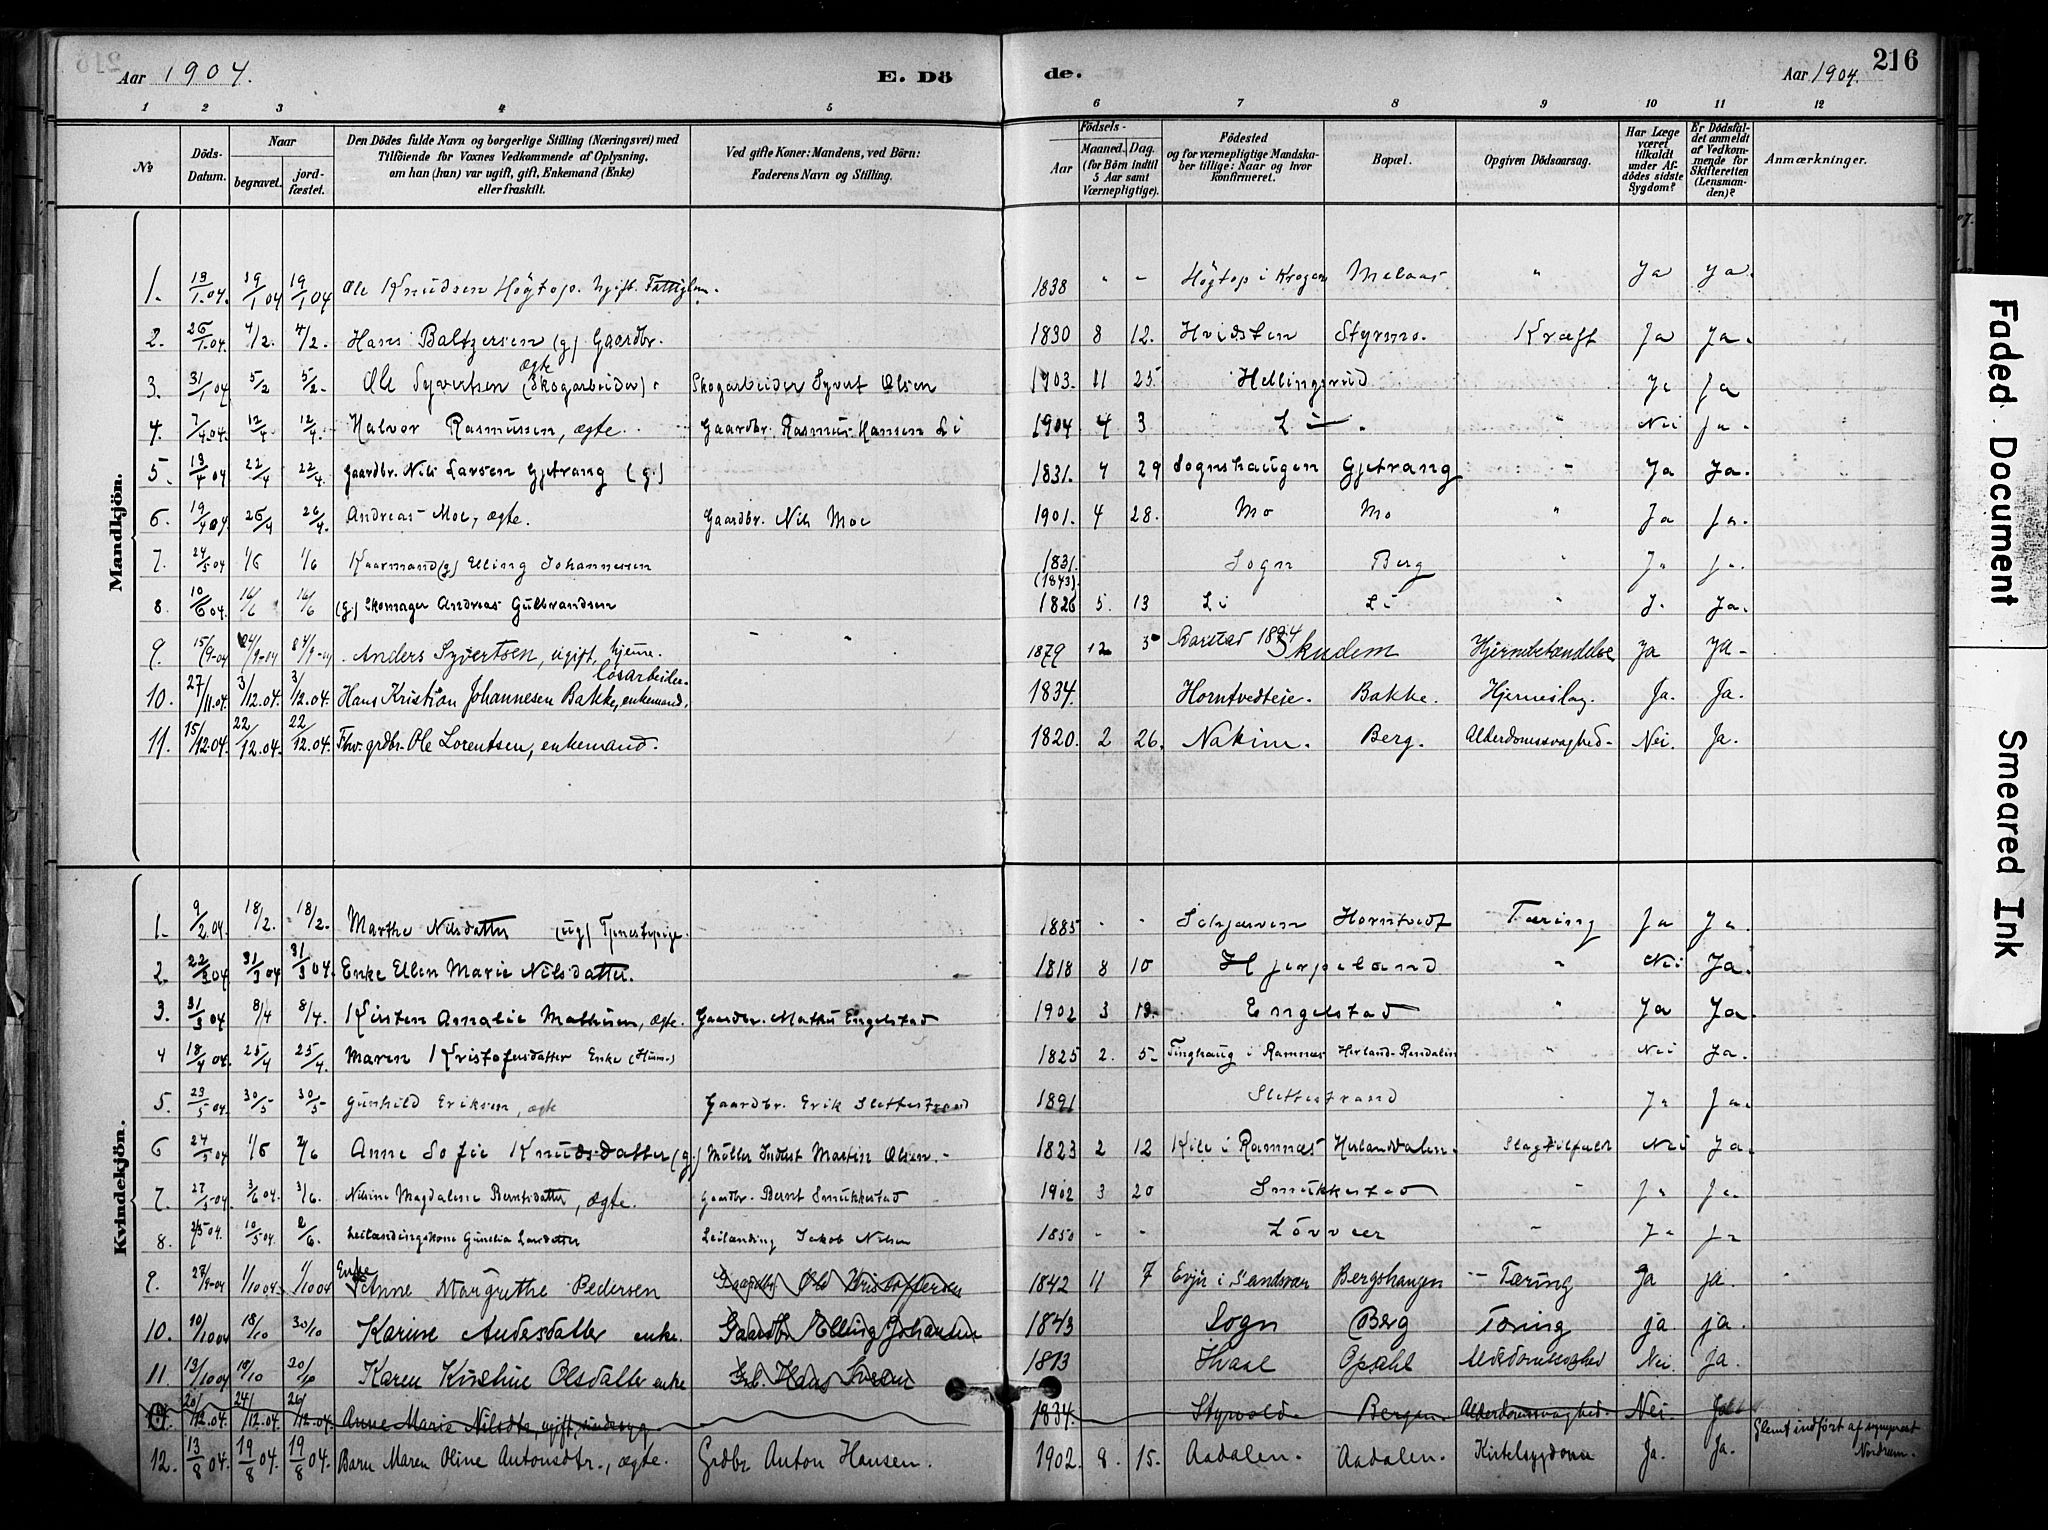 Aar 1904. E. Dö
de. Aar 1904. 216
1 2 3 4 5 6 7 8 9 10 11 12
№
Döds-Datum.
Naar
begravet.
jord-fæstet.
Den Dödes fulde Navn og borgerlige Stilling (Næringsvei) med
Tilföiende for Voxnes Vedkommende af Oplysning,
om han (hun) var ugift, gift, Enkemand (Enke)
eller fraskilt.
Ved gifte Koner: Mandens, ved Börn:
Faderens Navn og Stilling.
Födsels-
Aar
Maaned. Dag.
(for Börn indtil
5 Aar samt
Værnepligtige).
Födested
og for værnepligtige Mandska-
ber tillige: Naar og hvor
konfirmeret.
Bopæl.
Opgiven Dödsaarsag.
Har Læge
været
tilkaldt
under Af-
dödes sidste
Sygdom?
Er Dödsfal-
det anmeldt
af Vedkom-
mende for
Skifteretten
(Lensman-
den)?
Anmærkninger.
Mandkjön.
1. 13/1.04. 19/1 04 19/1 04 Ole Knudsen Högtop. Ugift. Fattiglem. 1838 " - Högtop i Krogen Melaas " Ja Ja.
2. 26/1.04. 4/2. 4/2. Hans Baltzersen (g) Gaardbr. 1830 8 12. Hvidsten Styrmo. Kræft Ja Ja.
3. 31/1 04 5/2 5/2. Ole Syvertsen ægte (Skogarbeider) Skogarbeider Syvert Olsen 1903. 11 25 Hellingsrud Ja Ja
4. 7/4.04. 12/4 12/4. Halvor Rasmussen, ægte. Gaardbr. Rasmus Hansen Li 1904 4 3 Li . Nei Ja.
5. 13/4 04 22/4 22/4. Gaardbr. Nils Larsen Gjetrang (g.) 1831. 4 29 Sognshaugen Gjetrang - Ja Ja.
6. 19/4 04 26/4 26/4. Andreas Moe, ægte. Gaardbr. Nils Moe 1901. 4 28. Mo Mo " Ja Ja.
7. 24/5 04 1/6 1/6 Kaarmand (g) Elling Johannesen 1831. (1843). Sogn Berg " Ja Ja.
8. 10/6 04. 16/6 16/6 (g.) Skomager Andreas Gulbrandsen 1826 5. 13 Li Li " Ja. Ja.
9. 15/9-04 24/9-04 24/9-04 Anders Syvertsen, ugift, hjemme. 1879 12 5 1894 Skudem Hjernebetændelse Ja Ja-
10. 27/11.04. 3/12.04. 3/12.04. Hans Kristian Johannesen Bakke, enkemand, losarbeider. 1834. Horntvedteie. Bakke. Hjerneslag. Ja. Ja.
11. 15/12.04. 22/12.04. 22/12.04. Fhv. grdbr. Ole Lorentsen, enkemand. 1820. 2 26. Nakim. Berg. Alderdomssvaghed. Nei. Ja.
Kvindekjön.
1. 9/2.04. 18/2. 18/2. Marthe Nilsdatter (ug) Tjenestepige. 1885 - - Horntvedt Tæring Ja Ja.
2. 22/3 04 31/3 04 31/3 04. Enke Ellen Marie Nilsdatter. 1818 8 10 Hjerpeland " Nei Ja.
3. 31/3 04 8/4 8/4. Kirsten Amalie Mathisen, ægte. Gaardbr. Mathis Engelstad 1902 3 19. Engelstad " Ja Ja.
4 18/4 04. 25/4 25/4 Maren Kristofersdatter Enke (Hum.) 1825 2. 5- Tinghaug i Ramnæs Herland-Rendalen " Nei Ja.
5. 23/5 04. 30/5 30/5 Gunhild Eriksen, ægte Gaardbr. Erik Slettestrand 1891 Slettestrand Ja Ja.
6 24/5 04 1/6 2/6 Anne Sofie Knudsdatter (g.) Möller Inderst Martin Olsen. 1823 2 12 Kile i Ramnæs Herlanddalen. Slagtilfælde Nei Ja.
7. 27/5 04 3/6 04. 3/6. Nilsine Magdalene Berntsdatter, ægte. Gaardbr. Bernt Smukkestad 1902 3 20 Smukkestad Ja Ja.
8. 2/5 04. 10/5 04 2/6. Leilændingskone Gunelia Larsdatter Leilænding Jakob Nilsen 1850 - - Lövvær - Ja Ja
9. 27/9-04 1/10 04. 1/10 04 Enke Anne Margrethe Pedersen Gaardbr. Ole Kristoffersen 1842 11 7 Evju i Sandsvær Bergshaugen - Tæring Ja ja.
10. 10/10 04 18/10 30/10 Karine Andersdatter enke. Gaardbr Elling Johansen 1843 Sogn Berg Tæring ja ja.
11. 13/10 04 18/10 20/10 Karen Kirstine Olsdatter enke Gb. Hans 1813 Opsahl Nei. Ja.
20/12.04. 24/12.04. 26/12.04 Anne Marie Nilsdtr, ugift, 1834. Styvold. Bergan Alderdomssvaghed. Nei.
12. 13/8 04. 19/8 04 19/8 04. Barn Maren Oline Antonsdtr., ægte. Grdbr Anton Hansen. 1902. 8. 15. Aadalen. Aadalen. Kirtelsygdom Ja. Ja. Glemt indfört af sogneprest Nordrum.
Faded Document Smeared Ink